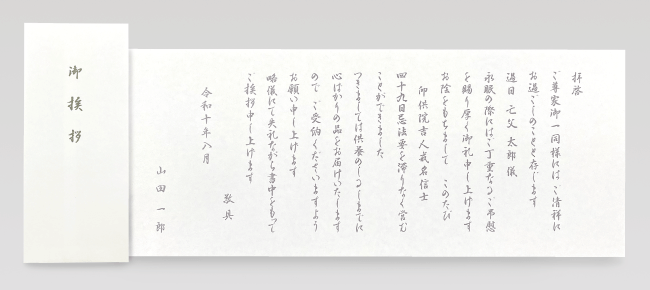 拝啓
ご尊家御一同様にはご清祥に
お過ごしのことと存じます
過日 亡父 太郎 儀
永眠の際にはご丁重なるご弔慰
を賜り厚く御礼申し上げます
お陰をもちまして このたび
御供院吉人戒名信士
四十九日忌法要を滞りなく営む
ことができました
つきましては供養のしるしまでに
心ばかりの品をお届けいたします
ので ご受納くださいますよう
お願い申し上げます
略儀にて失礼ながら書中をもって
ご挨拶申し上げます
敬具
令和十年八月
山田 一郎
御挨拶